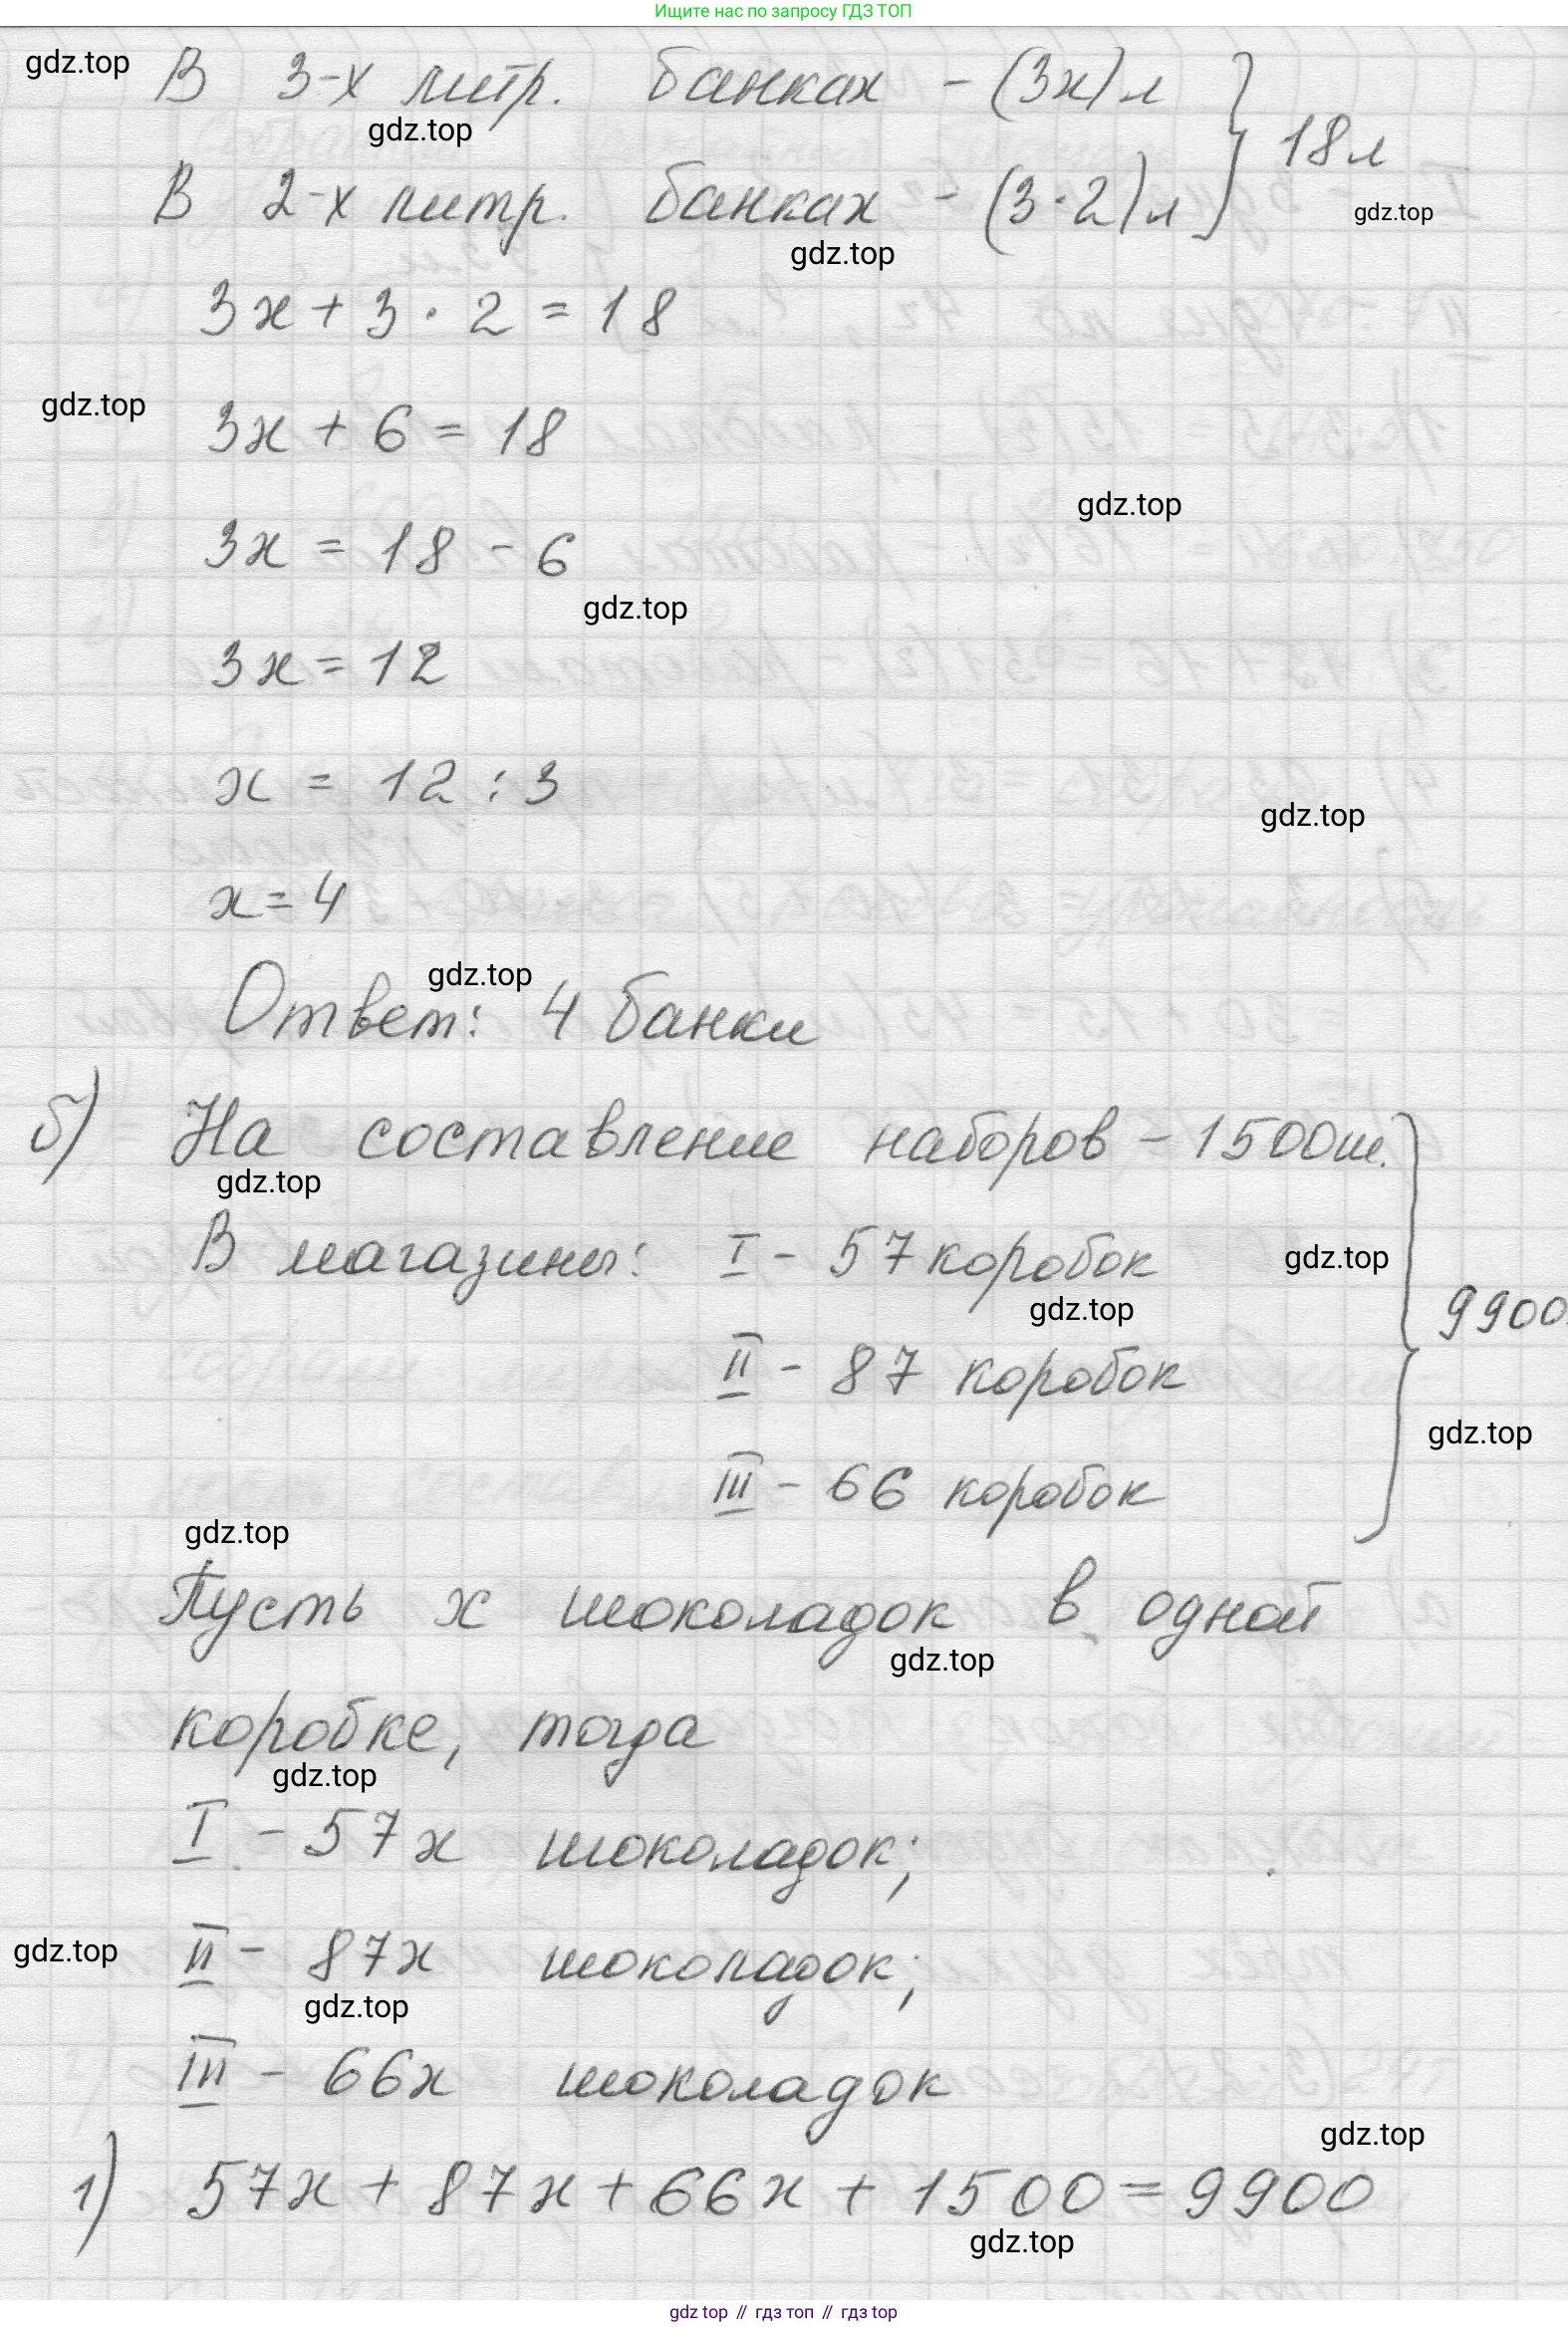 Ищите нас по запросу ГДЗ ТОП
gdz.top
В 3-х литр. банках - (3x) л
18 л
gdz.top
В 2-х литр. банках - (3·2) л
gdz.top
gdz.top
3x + 3 · 2 = 18
gdz.top
3x + 6 = 18
gdz.top
3x = 18 - 6
gdz.top
3x = 12
x = 12 : 3
gdz.top
x = 4
gdz.top
Ответ: 4 банки
б) На составление наборов - 1500 ш.
gdz.top
В магазины: I - 57 коробок
gdz.top
gdz.top
9900
II - 87 коробок
gdz.top
III - 66 коробок
gdz.top
Пусть x шоколадок в одной
gdz.top
коробке, тогда
gdz.top
I - 57x шоколадок;
gdz.top
II - 87x шоколадок;
gdz.top
III - 66x шоколадок
gdz.top
1) 57x + 87x + 66x + 1500 = 9900
gdz.top
gdz top // гдз топ // гдз top